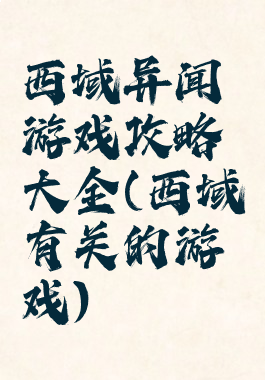 西域异闻
游戏攻略
大全(西域
有关的游
戏)